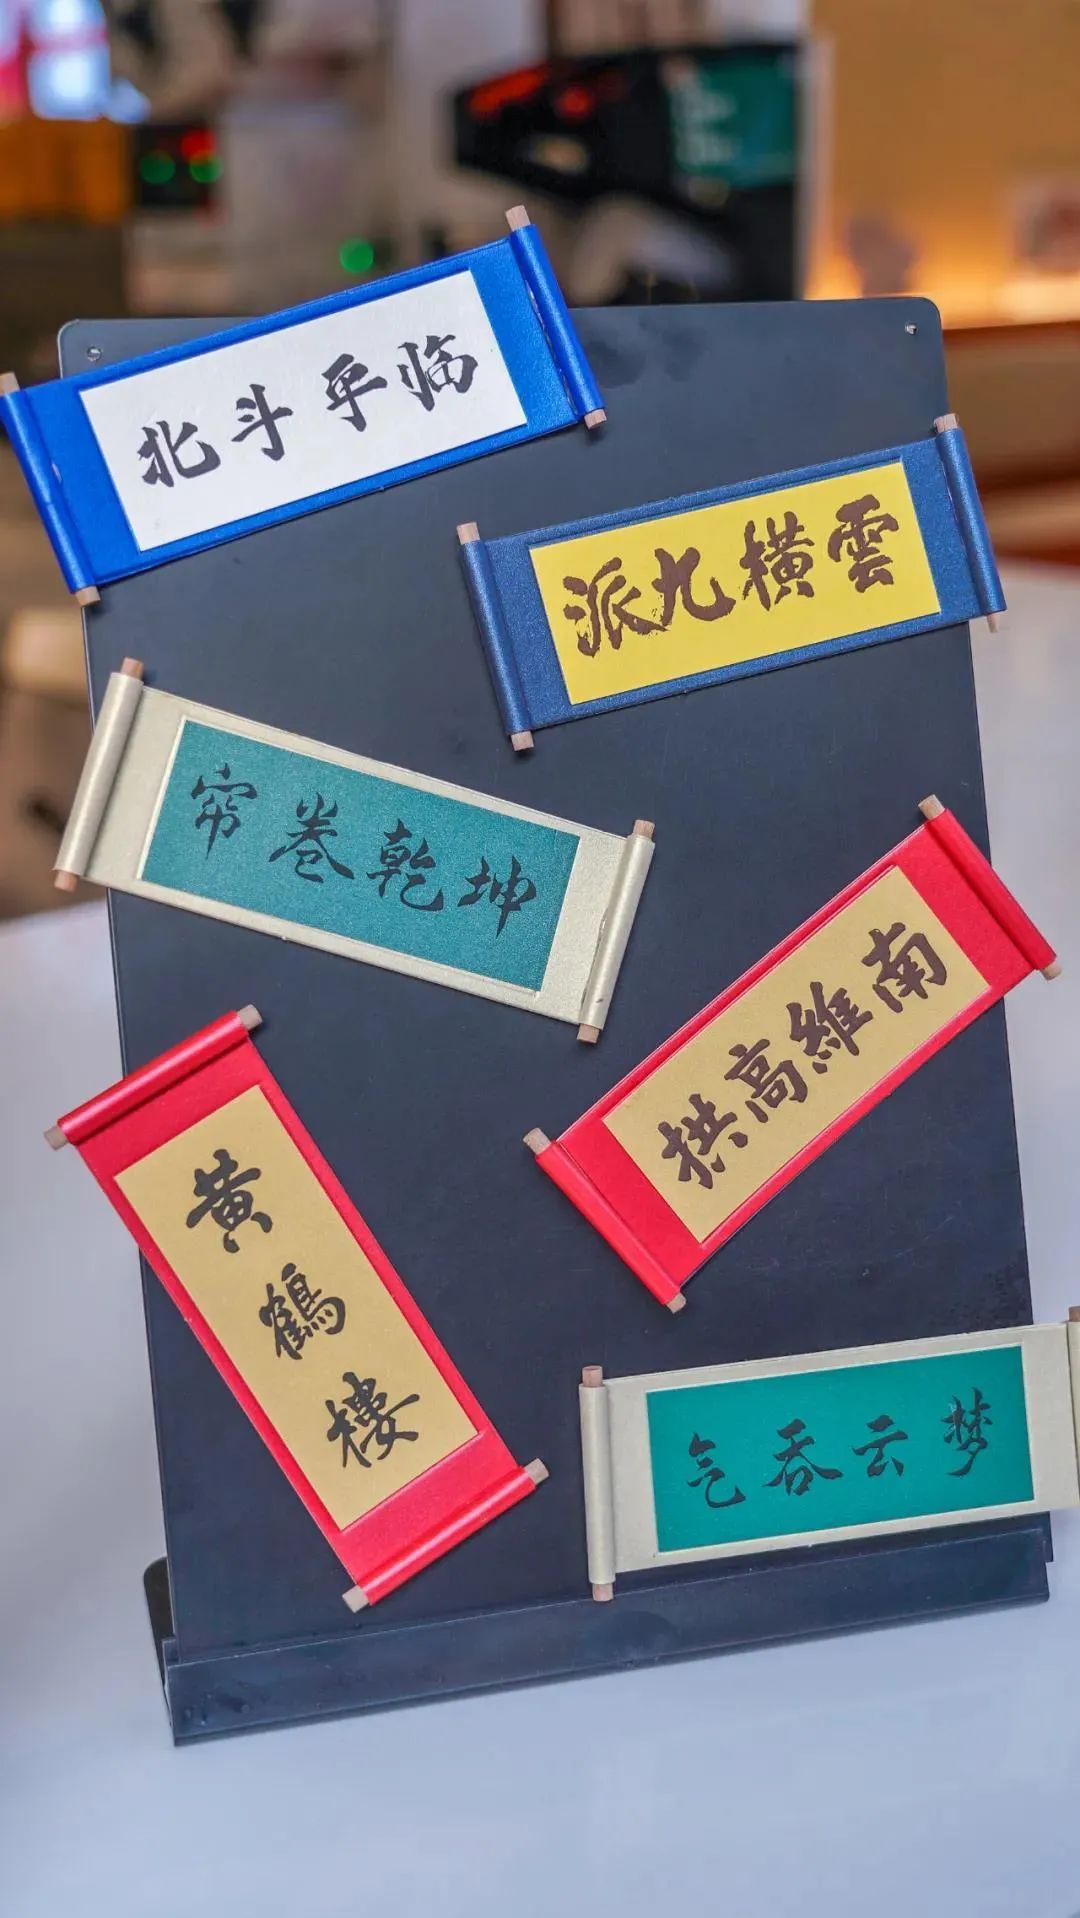 北斗平临
派九横雲
帘卷乾坤
拱高維南
黄鹤楼
气吞云梦